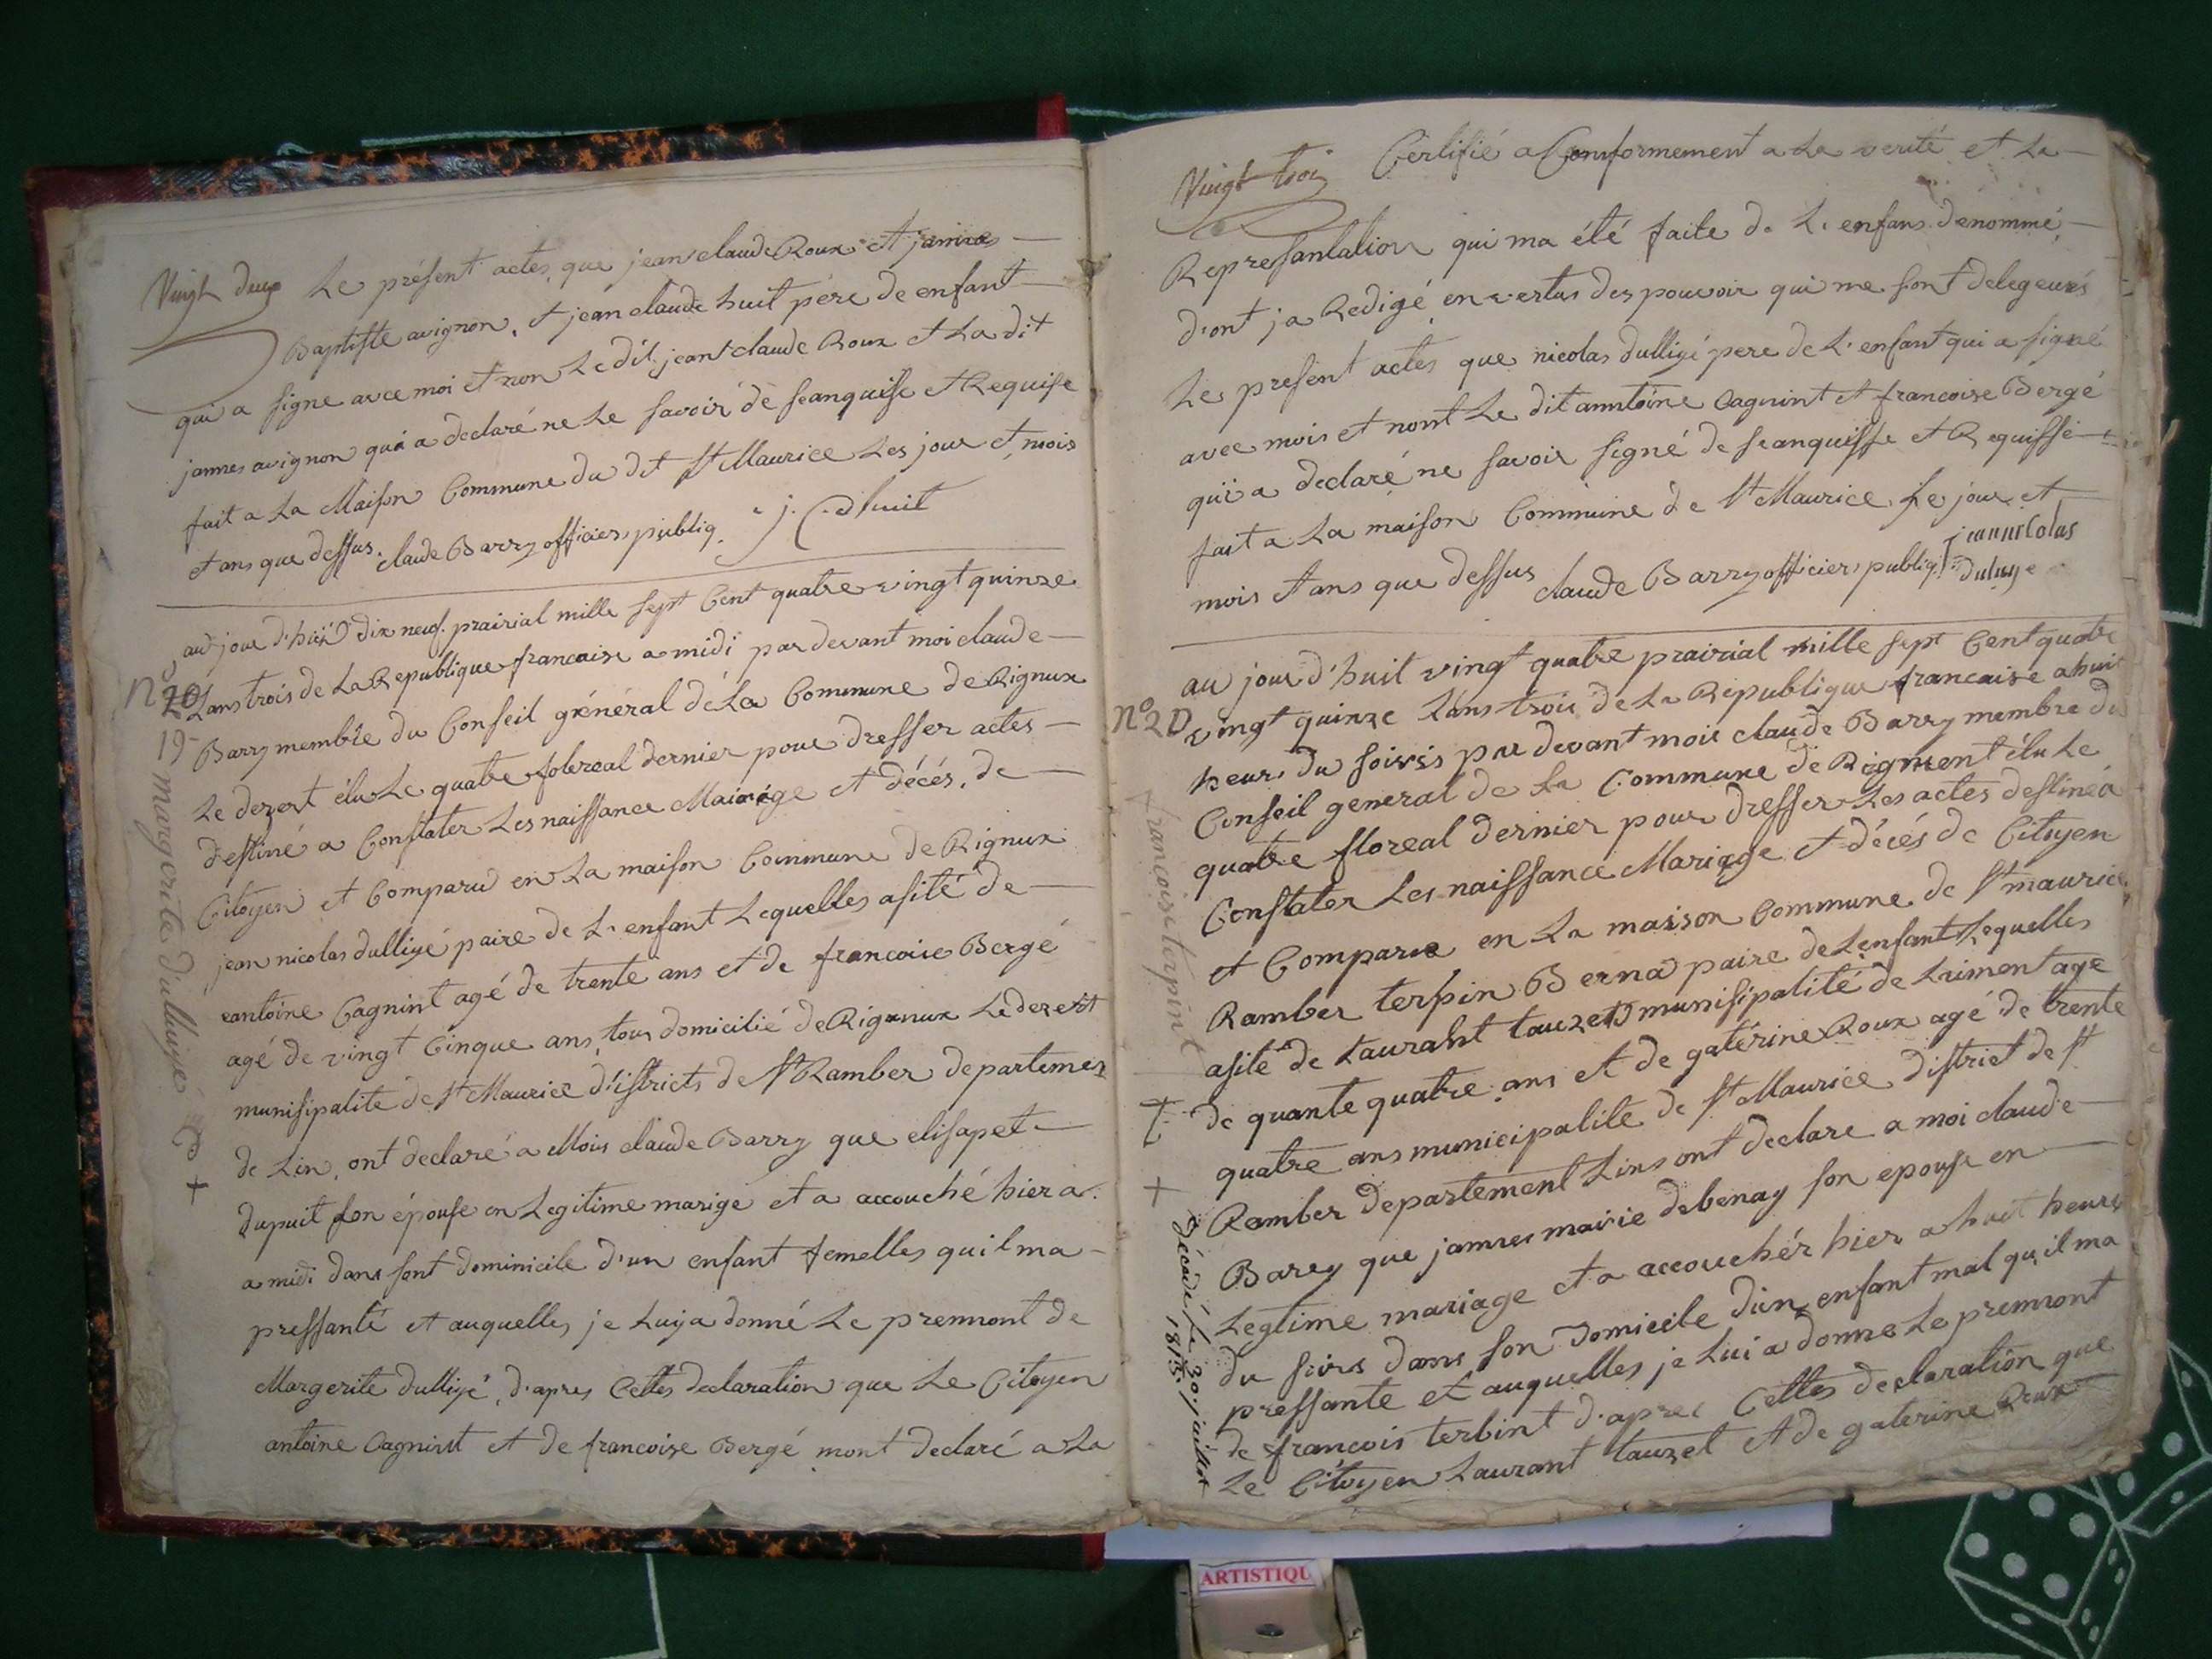 Vingt deux
Le présent actes, que jean claude Roux et jannes
Baptiste avignon, et jean claude huit pére de enfant
qui a signe avec moi et non Le dit jean claude Roux et La dit
jannes avignon qui a declaré ne Le savoir de seanquise et Requise
fait a La Maison Commune du dit St Maurice Les jour et mois
et ans que dessus. claude Barry officier publiq.
au jour d'huit dix neuf. prairial mille sept Cent quatre vingt quinze
Lans trois de La Republique francaise a midi par devant moi claude
Barry membre du Conseil général dé La Commune de Rignux
Le dezert élu Le quatre folereal dernier pour dresser actes
destiné a Constater Les naissance Mairige et décés, de
Citoyen et Comparu en La maison Commune de Rignux
jean nicolas dulliyé paire de L'enfant Lequelles asité de
eantoine Cagnint agé de trente ans et de francoise Bergé
agé de vingt Cinque ans, tous domicilié de Rignux Le dezert
munisipalité de St Maurice d'istricts de St Ramber departemen
de Lin, ont declaré a Mois claude Barry que elisapet
dupuit son épouse en Legitime marige et a accouché hier a
a midi dans sont dominicile d'un enfant femelles quil ma
pressanté et auquelles je Luy a donné Le prennont de
Margerite dulliyé, d'apres Celles declaration que Le Citoyen
antoine Cagnint et de francoise Bergé mont declaré a La
N° 20
19
margerite dulluyé
+
Vingt troi
Certifié a Comformement a La verité et La
Represantation qui ma été faite de L'enfans denommé
d'ont ja Redigé en vertus des pouvoir qui me sont delegeués
Le present actes que nicolas dulliyé pere de L'enfant qui a signé
avec mois et nont Le dit anntoine Cagnint et francoise Bergé
qui a declaré ne savoir signé de seanquisse et Requisse
fait a La maison Commune de St Maurice Le jour et
mois et ans que dessus claude Barry officier publiq.
jean nicolas
duluye
au jour d'huit vingt quatre prairial mille sept Cent quatre
vingt quinze Lans trois de La Republique francaise a huit
heur du soirs par devant mois claude Barry membre du
Conseil general de La Commune de Rignient élu Le
quatre floreal dernier pour dresser Les actes destiné a
Constater Les naissance Mariage et décés de Citoyen
et Compare en La maison Commune de St maurice
Ramber terpin Berna paire de Lenfant Lequelles
asité de Laurant tauzet munisipalité de Lriment age
de quante quatre ans et de gatérine Roux agé de trente
quatre ans municipalite de St Maurice district de St
Ramber departement Lins ont declare a moi claude
Barry que jannes mairie debenay son epouse en
Legtime mariage et a accouchér hier a huit heures
du soirs dans son Domicile d'un enfant mal qu'il ma
pressante et auquelles je Lui a donne Le premnont
de francois terbint d'apres Celles declaration que
Le Citoyen Laurant tauzet et de gaterine Roux
N° 20
francoise terpint
+
décédé le 30 juillet
1815
ARTISTIQU